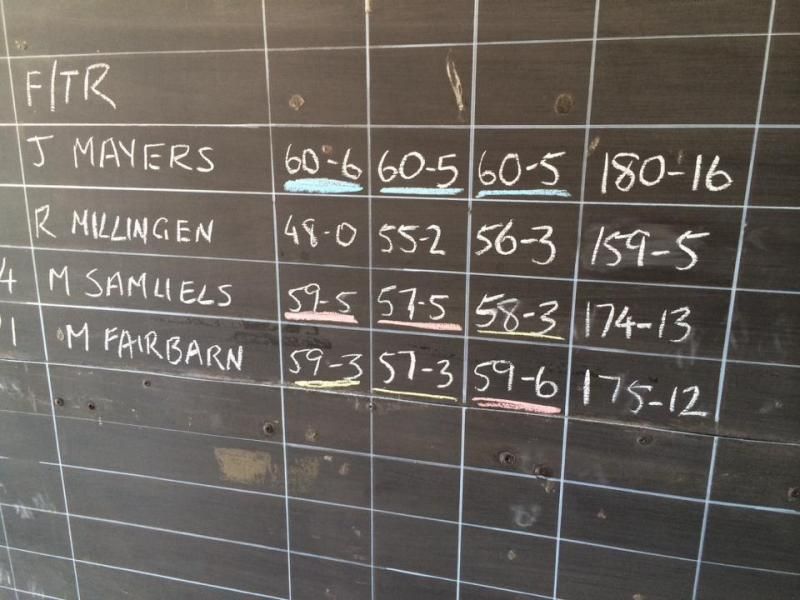 F/TR
J MAYERS 60-6 60-5 60-5 180-16
R MILLINGEN 48-0 55-2 56-3 159-5
4 M SAMUELS 59-5 57-5 58-3 174-13
1 M FAIRBARN 59-3 57-3 59-6 175-12